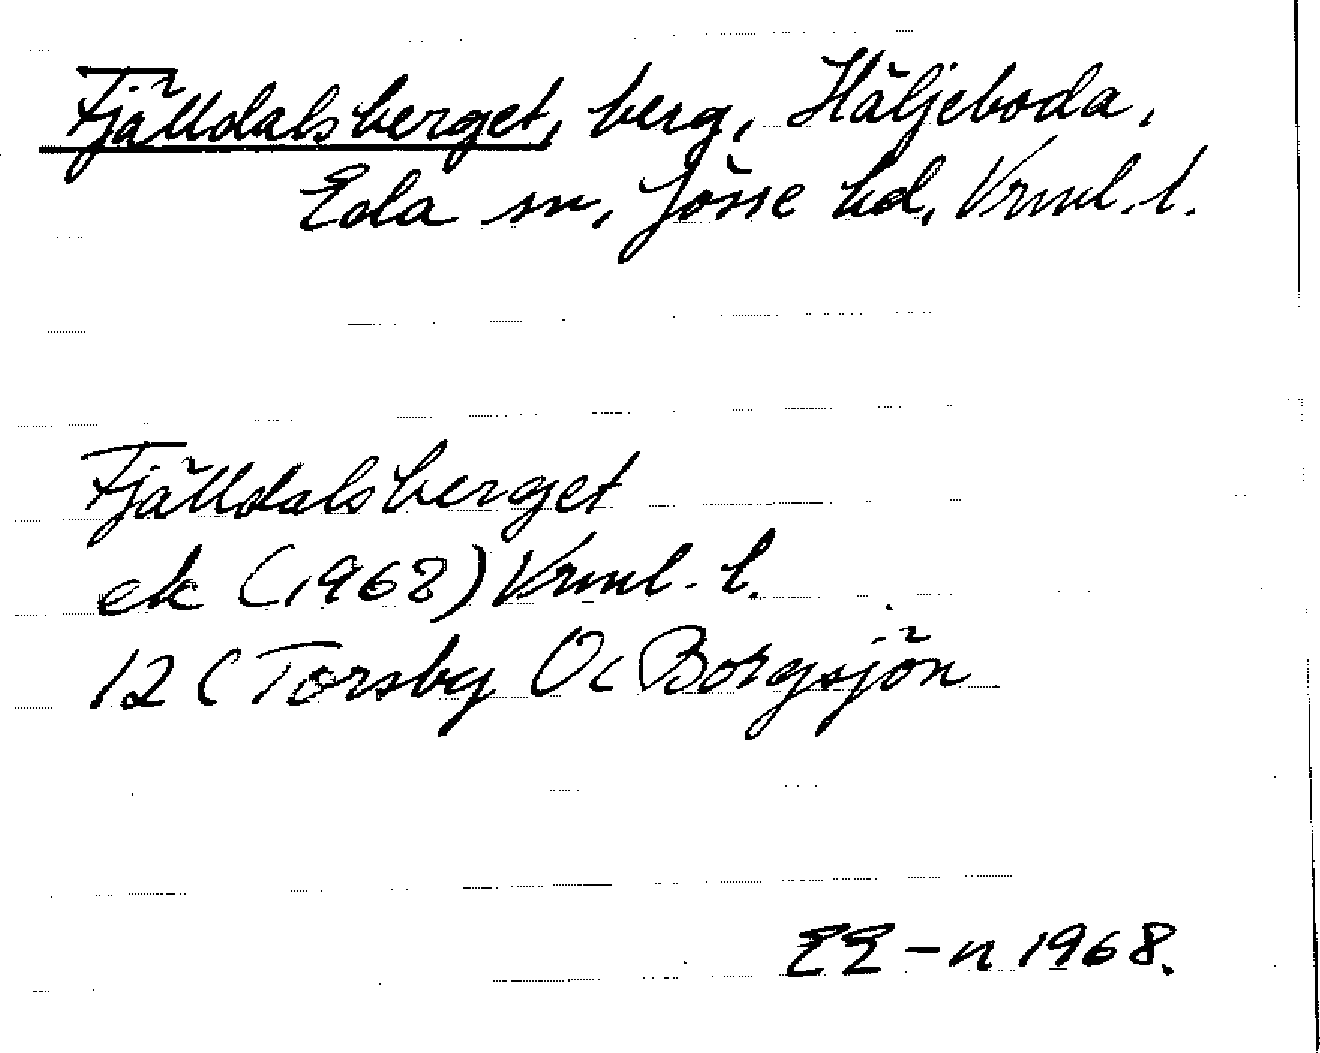 Fjälldalsberget, berg, Häljeboda,
Eda sn, Jösse hd, Vrml. l.
Fjälldalsberget
ek (1968) Vrml. l.
12 C Torsby 0c Borgsjön
EE-n 1968.